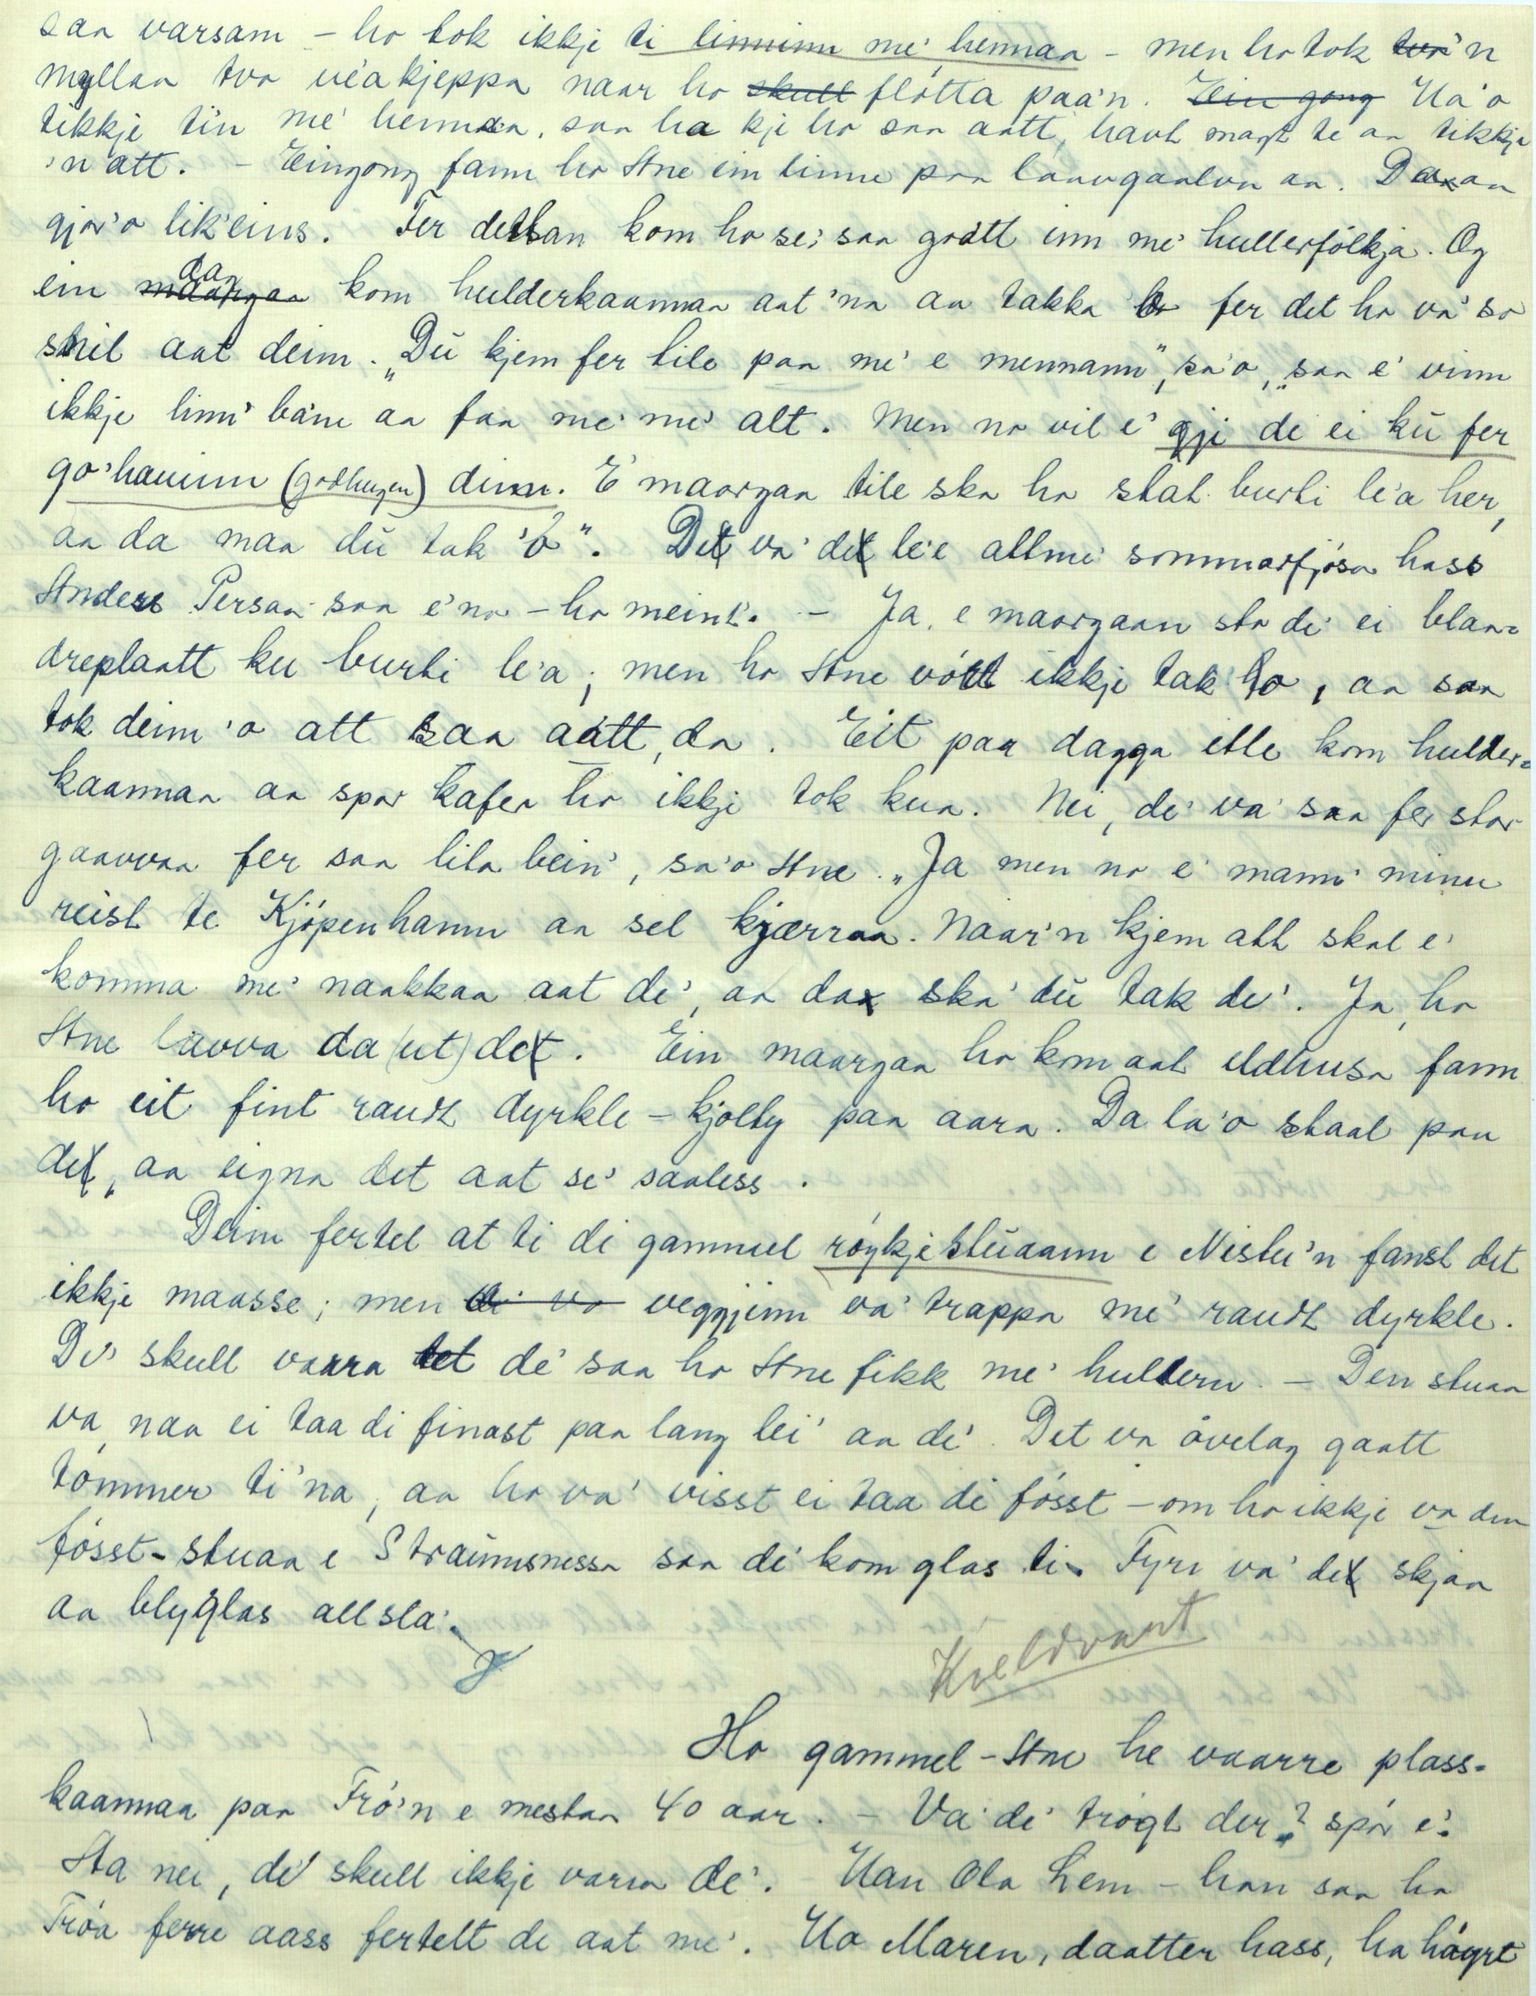 saa varsam – ho tok ikkje ti linninn me' hennaa – men ho tok tvi'n
myllaa tvo ve'akjeppa naar ho skull flötta paa'n. Ein gong Ha'o
tikkje ti'n me' hennaa, saa ha kje ho saa aatt, havt magt te aa tikkja
'n att. – Eingong fann ho Ane ein linne paa laavgaalva aa. Da aa
gjor'o lik'eins. Fer dettan kom ho se' saa godtt inn me' hullerfólkja. Og
ein maargaa dag kom hulderkaannaa aat 'na aa takka ho fer det ho va' so
snil aat deim. „Dú kjem fer tile paa me' e mennann", sa'o, „saa e' vinn
ikkje linn' ba'ne aa faa me' me' alt. Men no vil e' gji de ei kú fer
go'hauinn (godhugen) dinn. E' maargaa tile ska ho staa burti le'a her,
aa da maa dú tak 'ó". Det va' det le'e allme' sommarfjósa hass
Anders Persaa saa e' no – ho meint'. – Ja, e maargaan sto de' ei blan-
dreplaatt ku burti le'a; men ho Ane vótt ikkje tak ho, aa saa
tok deim 'o att saa aatt, da. Eit paa dagga ette kom hulder-
kaannaa aa spor kafer ho ikkje tok kua. Nei, de' va' saa fer stor
gaavvaa fer saa lita bein', sa'o Ane. „Ja men no e' mann' minn
reist te Kjópenhamn aa sel kjærraa. Naar'n kjem att skal e'
komma me' naakkaa aat de', aa da ska' dú tak de'. Ja, ho
Ane lavva da (ut) det. Ein maargaa ho kom aat eldhusa fann
ho eit fint raudt dyrkle – kjolty paa aara. Da la'o staal paa
det, aa eigna det aat se' saaless.
Deim fertel at ti di gammel róykjestúaann e Nistu'n fanst det
ikkje maasse; men de va veggjinn va' trappa me' raudt dyrkle.
De' skull vaara det de' saa ho Ane fikk me' huldern. – Den stuaa
va naa ei taa di finast paa lang lei' aa de'. Det va óvelag gaatt
tómmer ti 'na, aa ho va' visst ei taa di fósst – om ho ikkje va den
fósst-stuaa e Straumsnessa saa de' kom glas ti. Fyri va' det skjaa
aa blyglas allsla'.
Kveldvart
Ho gammel-Ane he vaarre plass-
kaannaa paa Tró'n e mestaa 40 aar. – Va' de' trógt der? spór e'.
Aa nei, de' skull ikkje vaara de'. Han Ola Lem – han saa ha
Tróa ferre aass fertelt de aat me'. Ho Maren, daatter hass, ha hóyrt